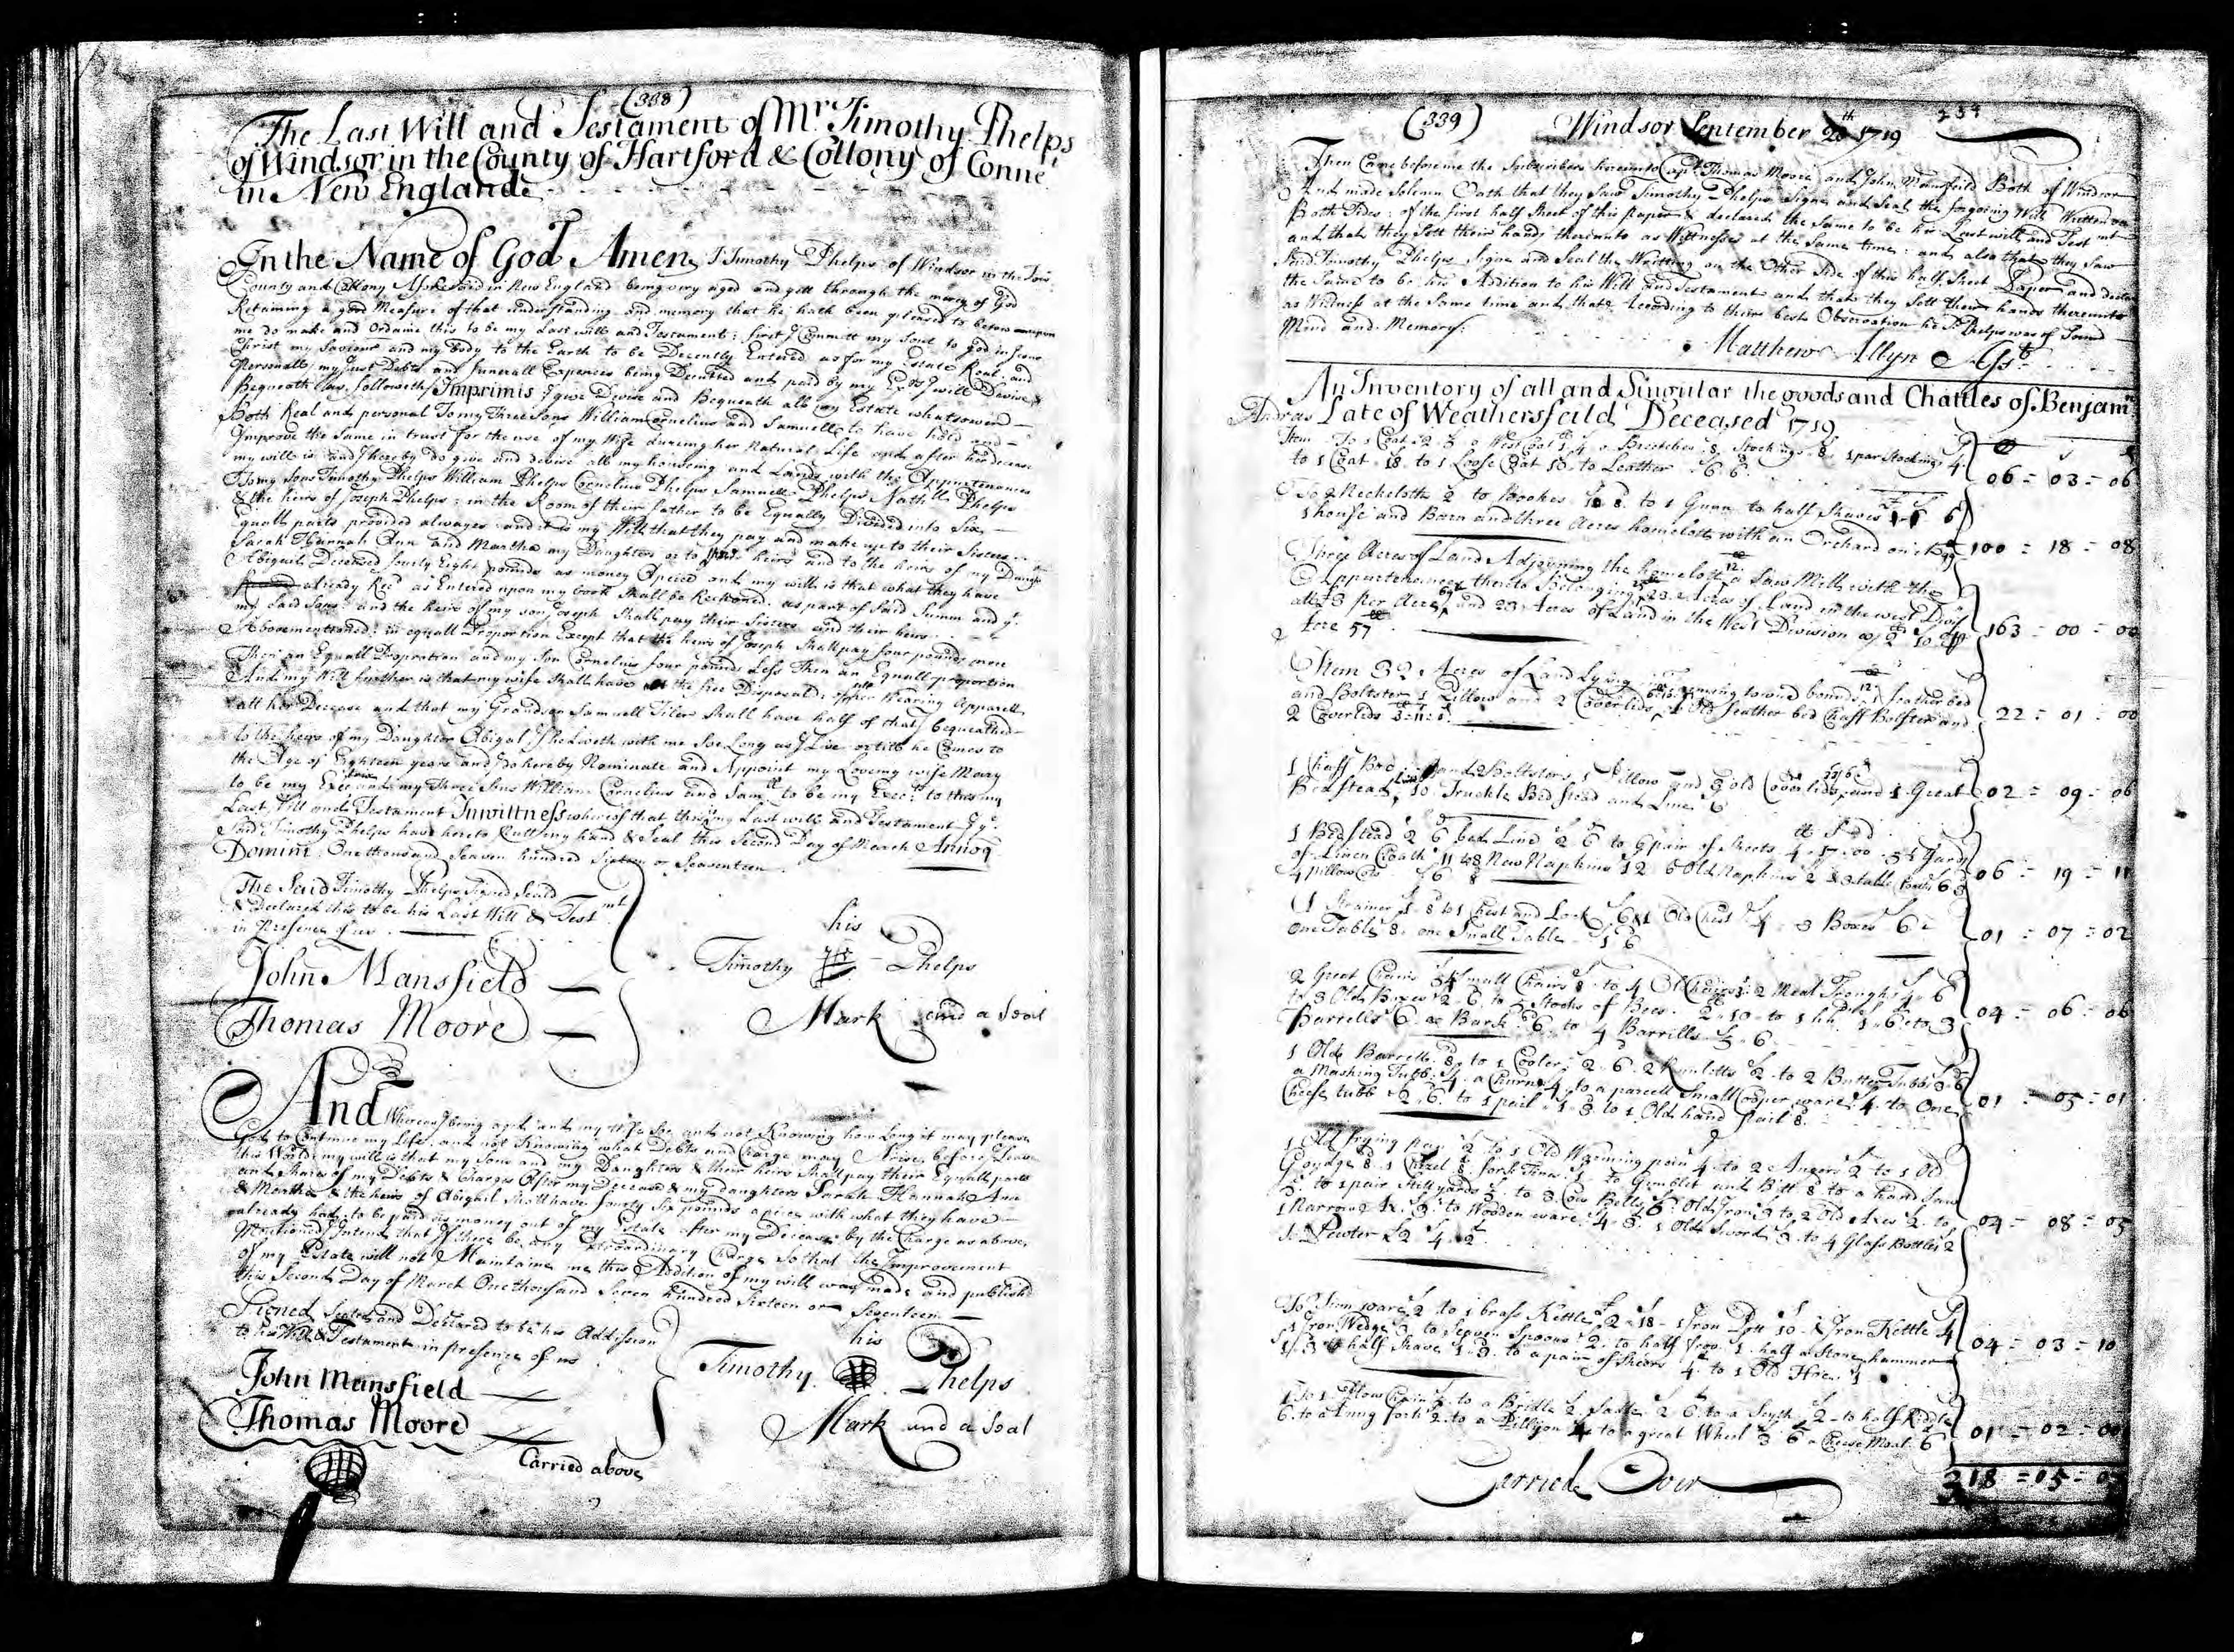 (338)
The Last Will and Testament of Mr Timothy Phelps
of Windsor in the County of Hartford & Collony of Conne
in New England
In the Name of God Amen, I Timothy Phelps of Windsor in the
County and Collony Aforesaid in New England being very aged and yett through the mercy of God
Retaining a good Measure of that understanding and memory that he hath been pleased to bestow upon
me do make and Ordaine this to be my Last will and Testament: first I Committ my Soul to God in Jesus
Christ my Saviour and my Body to the Earth to be Decently Entered as for my Estate Reall and
Personall my Just Debts and funerall Expences being Deducted and paid by my I will Devise &
Bequeath as followeth Imprimis I give Devise and Bequeath all my Estate whatsoever
Both Real and personal To my Three Sons William Cornelius and Samuell to have hold and
Improve the Same in trust for the use of my Wife dureing her Natural Life and after her decease
my will is and I hereby do give and devise all my houseing and Lands with the Appurtenances
To my Sons Timothy Phelps William Phelps Cornelius Phelps Samuell Phelps Nathll Phelps
& the heirs of Joseph Phelps: in the Room of their father to be Equally Divided into Six
Equall parts provided alwayes and it is my Will that they pay and make up to their Sisters
Sarah Hannah Ann and Martha my Daughters or to their heirs and to the heirs of my Daughtr
Abigail Deceased fourty Eight pounds as money Apeice and my will is that what they have
already Recd as Entered upon my book Shall be Reckoned as part of Said Summ and ye
my Said Sons and the heirs of my son Joseph Shall pay their Sisters and their heirs
Abovementioned: in equall Proportion Except that the heirs of Joseph Shall pay four pounds more
Then an Equall Proportion and my Son Cornelius four pounds Less Then an Equall proportion
And my Will further is that my wife Shall have the free Disposal of all her Wearing Apparell
att her Decease and that my Grandson Samuell Filer Shall have half of that I bequeathed
to the heirs of my Daughter Abigal if he Liveth with me Soe Long as I Live or till he Comes to
the Age of Eighteen years and I do hereby Nominate and Appoint my Loveing wife Mary
to be my Exectrix and my Three Sons William Cornelius and Samll to be my Execrs to this my
Last Will and Testament In wittness whereof that this is my Last will and Testament I ye
Said Timothy Phelps have hereto Putt my hand & Seal this Second Day of March Annoq
Domini One thousand Seaven hundred Sixteen or Seaventeen
The Said Timothy Phelps Signed Seald
& Declared this to be his Last Will & Testmt
in Presence of us
John Mansfield
Thomas Moore
his
Timothy Phelps
Mark and a Seal
And Whereas I being aged and my Wife Soe and not Knowing how Long it may please
God to Continue my Life and not Knowing what Debts and Charge may Arise before I Leave
this World: my will is that my Sons and my Daughters & their heirs Shall pay their Equall parts
and Shares of my Debts & Charges After my Decease & my daughters Sarah Hannah Ann
& Martha & the heirs of Abigail Shall have fourty Six pounds apiece with what they have
already had: to be paid as money out of my Estate after my Decease by the Charge as above
Mentioned I Intend that if there be any Extraordinary Charge So that the Improvement
of my Estate will not Maintaine me this Addition of my will was made and published
this Second Day of March One thousand Seven hundred Sixteen or Seventeen
Signed Sealed and Declared to be his Addission
to his Will & Testament in presence of us
John Mansfield
Thomas Moore
his
Timothy Phelps
Mark and a Seal
Carried above
(339) Windsor September 28th 1719
Then Came before me the Subscribers hereunto Capt Thomas Moore and John Mansfeild Both of Windsor
And made Solemn Oath that they Saw Timothy Phelps Signe and Seal the forgoing Will Written on
Both Sides: of the first half Sheet of this paper & declared the Same to be his Last will and Testmt
and that they Sett their hands thereunto as Wittnesses at the Same time: and also that they Saw
Said Timothy Phelps Signe and Seal the Writting on the Other Side of this half Sheet Paper and
the Same to be his Addition to his Will and Testament and that they Sett their hands thereunto
as Witness at the Same time and that According to their best Observation he Sd Phelps was of Sound
Mind and Memory:
Matthew Allyn Asst
An Inventory of all and Singular the goods and Chattles of Benjamn
Andrus Late of Weathersfeild Deceased 1719
Item To 1 Coat Westcoat Breetches 8 Stockings 8 1 par Stockings 4
to 1 Coat 18 to 1 Loose Coat 10 to Leather 6 6 06 = 03 = 06
To 2 Neckcloths 2 to Bookes to 1 Gunn to half Shares
1 house and Barn and three Acres homelott with an Orchard on it 100 = 18 = 08
Three Acres of Land Adjoyning the homelott 12 a Saw Mill with the
Appurtenances thereto Belonging 23 Acres of Land in the west Divis
att 3 per Acre and 23 Acres of Land in the West Division
Acre 57 163 = 00 = 00
Item 32 Acres of Land Lying bounds 1 feather bed
and Boltster 1 Pillow and 2 Coverlids 1 Old feather bed Chaff Bolster and
2 Coverlids 22 = 01 = 00
1 Chaff Bed and 2 Boltstors 1 Pillow and 3 old Coverlids and 1 Great
Bedstead 10 Truckle Bedstead and Line 6 02 = 09 = 06
1 Bedstead 2 6 bed Lind 2 6 to 6 pair of Sheets 4 = 17 = 00 Yards
of Linen Cloath 11 to 8 New Napkins 12 6 Old Napkins 2
4 pillow 06 = 19 = 11
1 Strainer to 1 Chest and Lock 6 1 Old Chest 4 3 Boxes 6
One Table 8 one Small Table 1 6 01 = 07 = 02
2 Great Chairs Small Chairs 8 to 4 Old Chairs 2 Meal Troughs 6
to 3 Old Boxes 2 6 to Stocks of Bees 2 10 to 1 hhd 1 6 to 3
Barrells 6 Bark 6 to 4 Barrills 6 04 = 06 = 06
1 Old Barrell 8 to 1 Cooler 2 6 2 Runlitts 2 to 2 Butter Tubbs
a Mashing Tubb 4 a Churn 4 to a parcell Small Cooper ware 4 to One
Cheese tubb 2 6 to 1 pail 1 3 to 1 Old hand pail 8 01 = 05 = 01
1 Old frying pan 2 to 1 Old Warming pan 4 to 2 Augers 2 to 1 Old
8 1 Chizel 8 fork Tines to Gimblet and Bitt 8 to a hand Saw
to 1 pair Stillyards to 3 Cow Bells 6 Old Iron 3 to 2 Old Axes 2 to
1 Narrow Ax 3 to Wodden ware 1 Old Sword 3 to 4 Glass Bottles 2
Pewter 2 4 2 04 = 08 = 05
To Tinn ware 2 to 1 brass Kettle 2 18 1 Iron Pott 10 1 Iron Kettle 4
1 Iron Wedge 3 to Seaven Spoons 2 to half 1 half a Stone hammer
half Shave to a pair of Sheers 4 to 1 Old Hoe 1 04 = 03 = 10
To 1 Plow Chain to a Bridle 2 Sadle 2 6 to a Scyth 2 to half Riddle
6 to a Dung fork 2 to a Pillyon to a great Wheel 3 6 a Cheese Moat 6 01 = 02 = 00
Carried Over 318 = 05 =